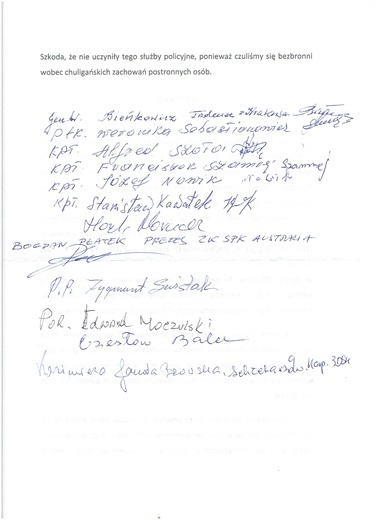 Szkoda, że nie uczyniły tego służby policyjne, ponieważ czuliśmy się bezbronni
wobec chuligańskich zachowań postronnych osób.
Gen. Bieńkowicz Tadeusz z Krakowa
płk. Weronika Sebastianowicz
kpt. Alfred Szota
kpt. Franciszek Szamrej Szamrej
kpt. Józef Nowik Nowik
kpt. Stanisław Kawałek
BOGDAN PŁATEK PREZES ZK SPK AUSTRALIA
P.P. Zygmunt Świstak
Por. Edward Moczulski
Czesław Baler
Kazimiera Janda